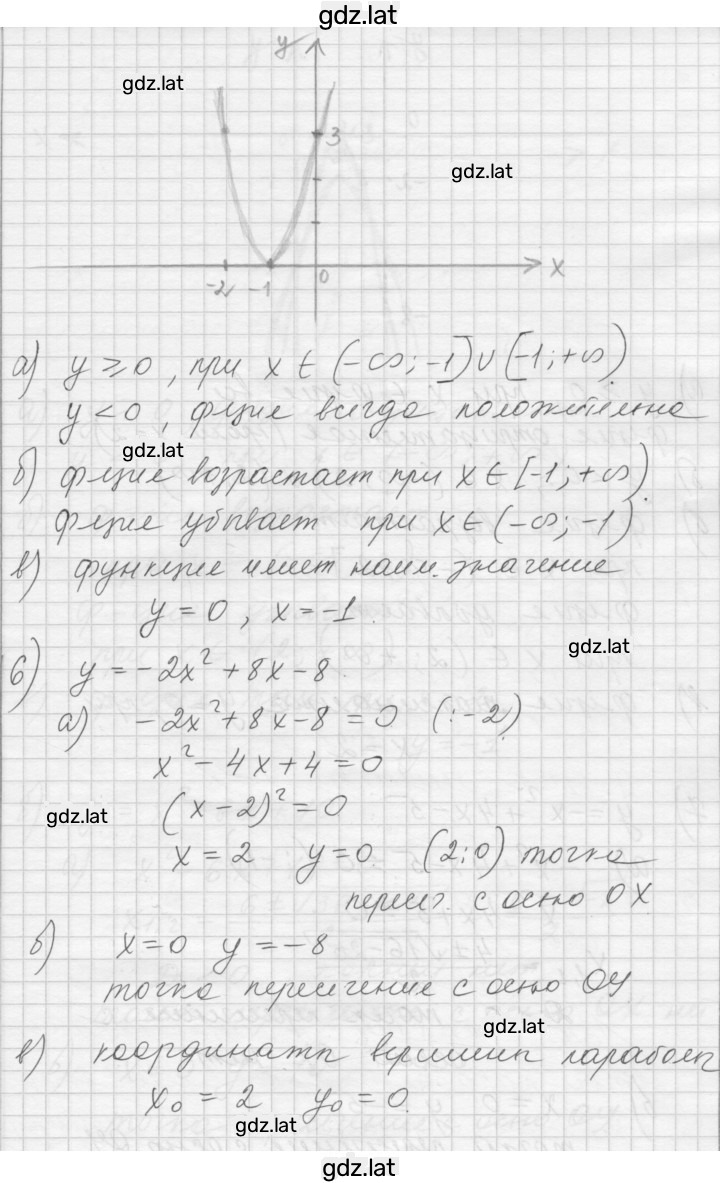 gdz.lat
y
gdz.lat
3
gdz.lat
-2 -1 0 x
а) y ⩾ 0, при x ∈ (-∞; -1] ∪ [-1; +∞)
y < 0, фция всегда положительна
gdz.lat
б) фция возрастает при x ∈ [-1; +∞)
фция убывает при x ∈ (-∞; -1)
в) функция имеет наим. значение
y = 0, x = -1.
gdz.lat
6) y = -2x² + 8x - 8.
а) -2x² + 8x - 8 = 0 (: -2)
x² - 4x + 4 = 0
gdz.lat
(x - 2)² = 0
x = 2 y = 0. (2; 0) точка
перес. с осью OX
б) x = 0 y = -8
точка пересечение с осью OY
gdz.lat
в) координаты вершины параболы
x₀ = 2 y₀ = 0.
gdz.lat
gdz.lat